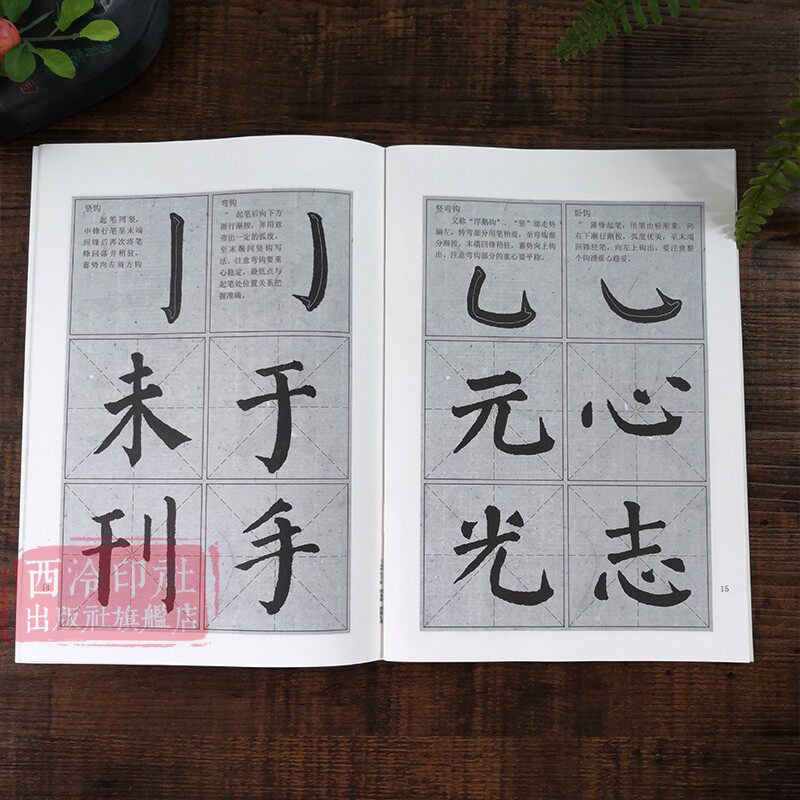 竖钩
起笔同竖，
中锋行笔至末端
回锋后再次将笔
锋回落并稍驻，
蓄势向左前方钩
弯钩
起笔后向下方
渐行渐按，并用意
带出一定的弧度，
至末端回锋竖钩写
法，注意弯钩要重
心稳定，最低点与
起笔处位置关系把
握准确。
未
于
刊
手
14
竖弯钩
又称“浮鹅钩”，“竖”部走势
偏左，转弯部分用笔稍提，至弯钩部
分渐按，末端回锋稍驻，蓄势向上钩
出，注意弯钩部分的重心要平稳。
卧钩
露锋起笔，用笔由轻渐重，向
右下渐行渐按，弧度优美，至末端
回锋驻笔，向左上钩出，要注意整
个钩势重心稳妥。
元
心
光
志
15
西泠印社
出版社旗舰店